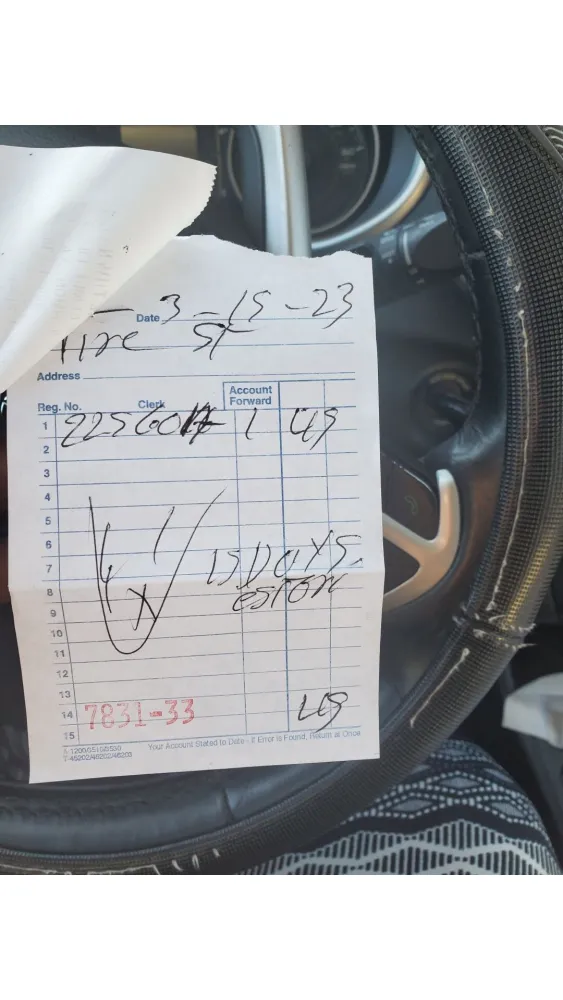 Date 3-15-23
Tire St
Address
Account Forward
Reg. No. Clerk
1 2256017 1 49
2
3
4
5
6
7 15 DAYS
8
9
10
11
12
13
14 7831-33 49
15
Your Account Stated to Date - If Error is Found, Return at Once